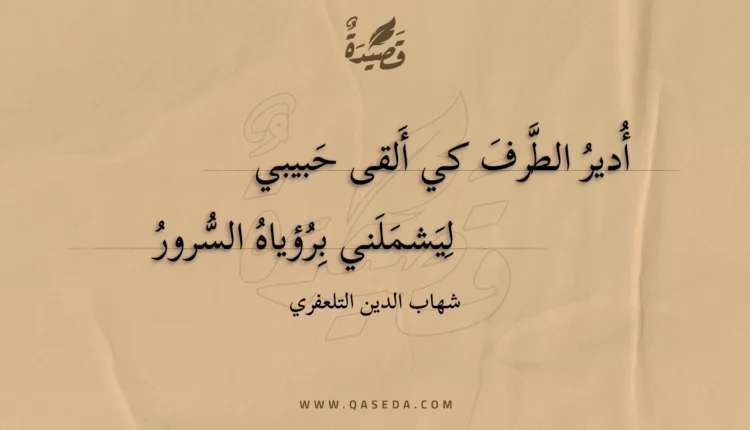 قَصِيدَةٌ
أُديرُ الطَّرفَ كي أَلقى حَبيبي
لِيَشمَلَني بِرُؤياهُ السُّرورُ
شهاب الدين التلعفري
WWW.QASEDA.COM